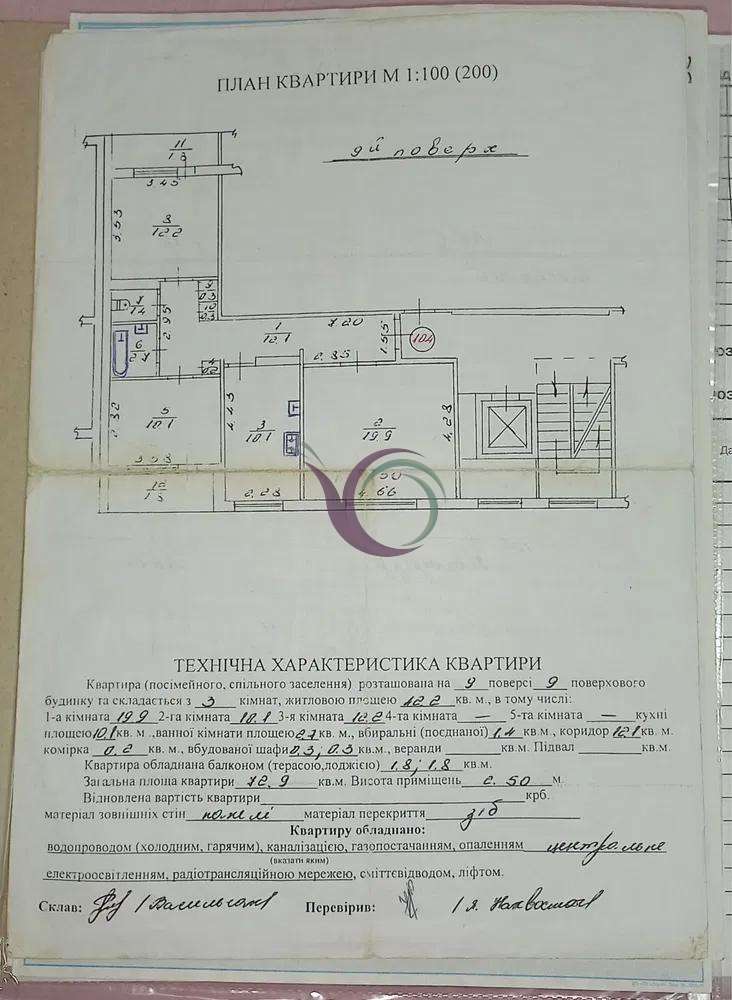 ПЛАН КВАРТИРИ М 1:100 (200)
9й поверх
11
1.8
3.45
3.53
8
12.2
7
1.4
9
0.3
10
0.3
2.95
6
2.7
1
12.1
7.20
1.55
104
4
0.2
2.85
2.82
5
10.1
4.45
3
10.1
2
19.9
4.28
3.58
12
1.8
2.28
4.66
ТЕХНІЧНА ХАРАКТЕРИСТИКА КВАРТИРИ
Квартира (посімейного, спільного заселення) розташована на 9 поверсі 9 поверхового
будинку та складається з 3 кімнат, житловою площею 42.2 кв. м., в тому числі:
1-а кімната 19.9 2-га кімната 10.1 3-я кімната 12.2 4-та кімната — 5-та кімната — кухні
площею 10.1 кв. м .,ванної кімнати площею 2.7 кв. м., вбиральні (поєднаної) 1.4 кв. м., коридор 12.1 кв. м.
комірка 0.2 кв. м., вбудованої шафи 0.3; 0.3 кв.м., веранди кв. м. Підвал кв.м.
Квартира обладнана балконом (терасою,лоджією) 1.8; 1.8 кв.м.
Загальна площа квартири 72.9 кв.м. Висота приміщень 2.50 м.
Відновлена вартість квартири крб.
матеріал зовнішніх стін панелі матеріал перекриття з/б
Квартиру обладнано:
водопроводом (холодним, гарячим), каналізацією, газопостачанням, опаленням центральне
(вказати яким)
електроосвітленням, радіотрансляційною мережею, сміттєвідводом, ліфтом.
Склав: Перевірив: